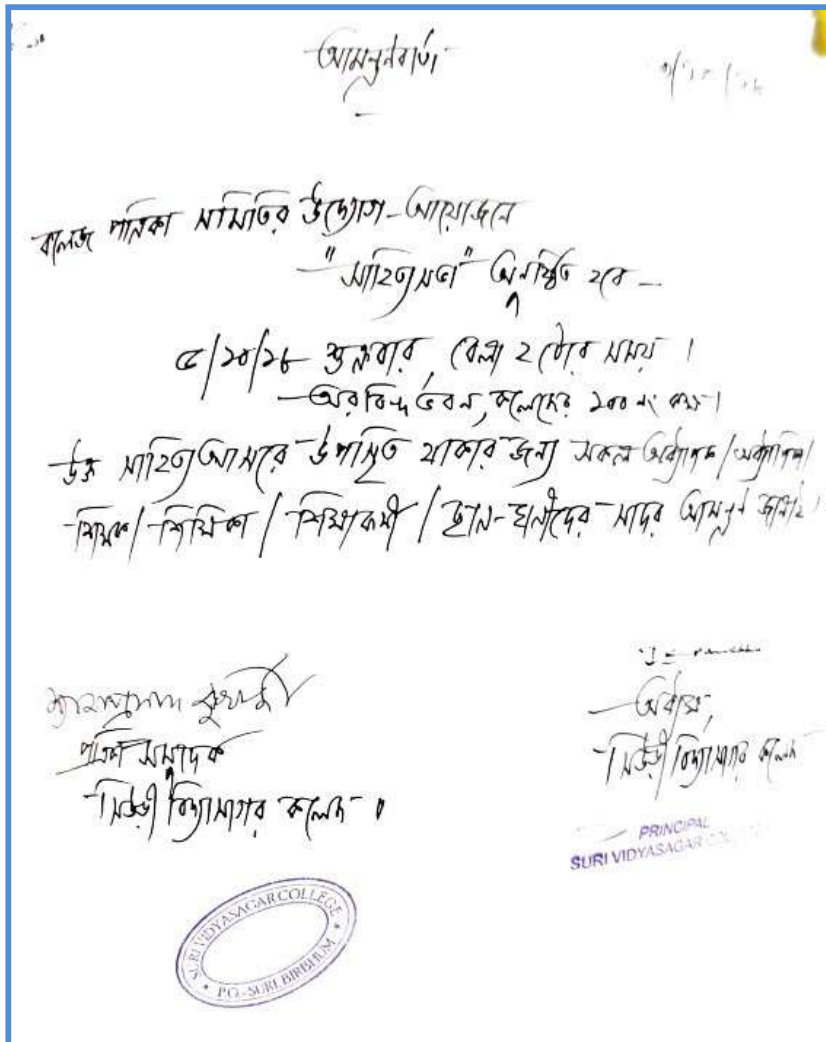 আমন্ত্রণবার্তা
কলেজ পত্রিকা সমিতির উদ্যোগ-আয়োজনে
"সাহিত্যসভা" অনুষ্ঠিত হবে —
৫/১০/১৮ শুক্রবার, বেলা ২ টোর সময় ।
অরবিন্দ ভবন, কলেজের ১০০ নং কক্ষ ।
উক্ত সাহিত্য আসরে উপস্থিত থাকার জন্য সকল অধ্যাপক / অধ্যাপিকা /
শিক্ষক / শিক্ষিকা / শিক্ষাকর্মী / ছাত্র-ছাত্রীদের সাদর আমন্ত্রণ জানাই ।
অধ্যক্ষ,
পত্রিকা সম্পাদক
সিউড়ী বিদ্যাসাগর কলেজ
সিউড়ী বিদ্যাসাগর কলেজ ।
PRINCIPAL
SURI VIDYASAGAR
SURI VIDYASAGAR COLLEGE
P.O.-SURI BIRBHUM